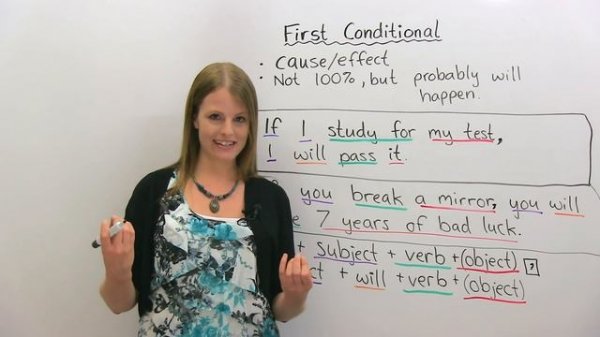 First Conditional
· Cause/effect
· Not 100%, but probably will
happen.
If I study for my test,
I will pass it.
you break a mirror, you will
7 years of bad luck.
+ subject + verb + (object) ,
+ will + verb + (object)